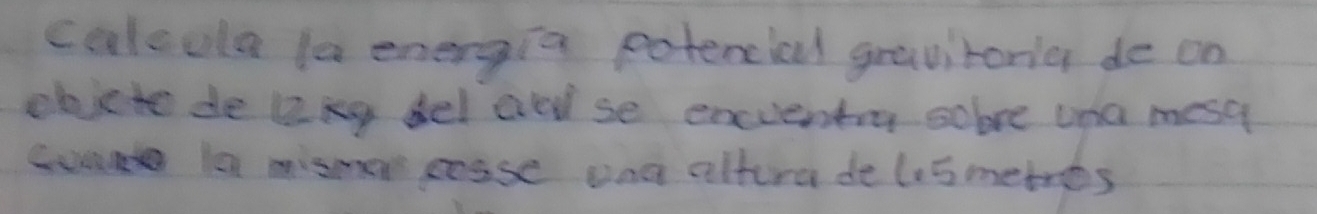 Calcula la energía potencial gravitoria de un
objeto de 12 kg del cual se encuentra sobre una mesa
cuando la misma posse una altura de 1.5 metros